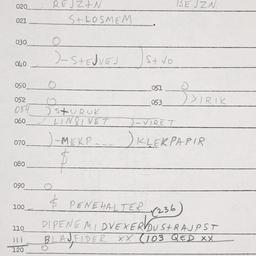 020 REJZ+N BEJZN
021 S+LOSMEM
030 O
040 )-S+EJVEJ )S+VO
050 O 051 O
052 O 053 )XIRIK
054 )S+URUK
060 LINSIVET )-VIRET
070 )-MEKP--- )KLEKPAPIR
080
090 O
100 & PENEHALTER (236)
110 DIPENEMIDVEKERVDUS+RAJPST
111 BLAJFIDER XX (103 QED XX
120 O